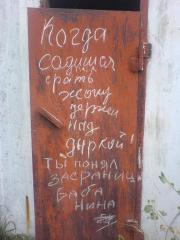 Когда
садишся
срать
жопу
держи
над
дыркой!
Ты понял
засранец
Баба
Нина